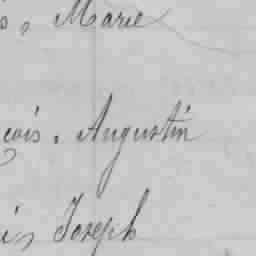 s, Marie
çois, Augustin
is, Joseph